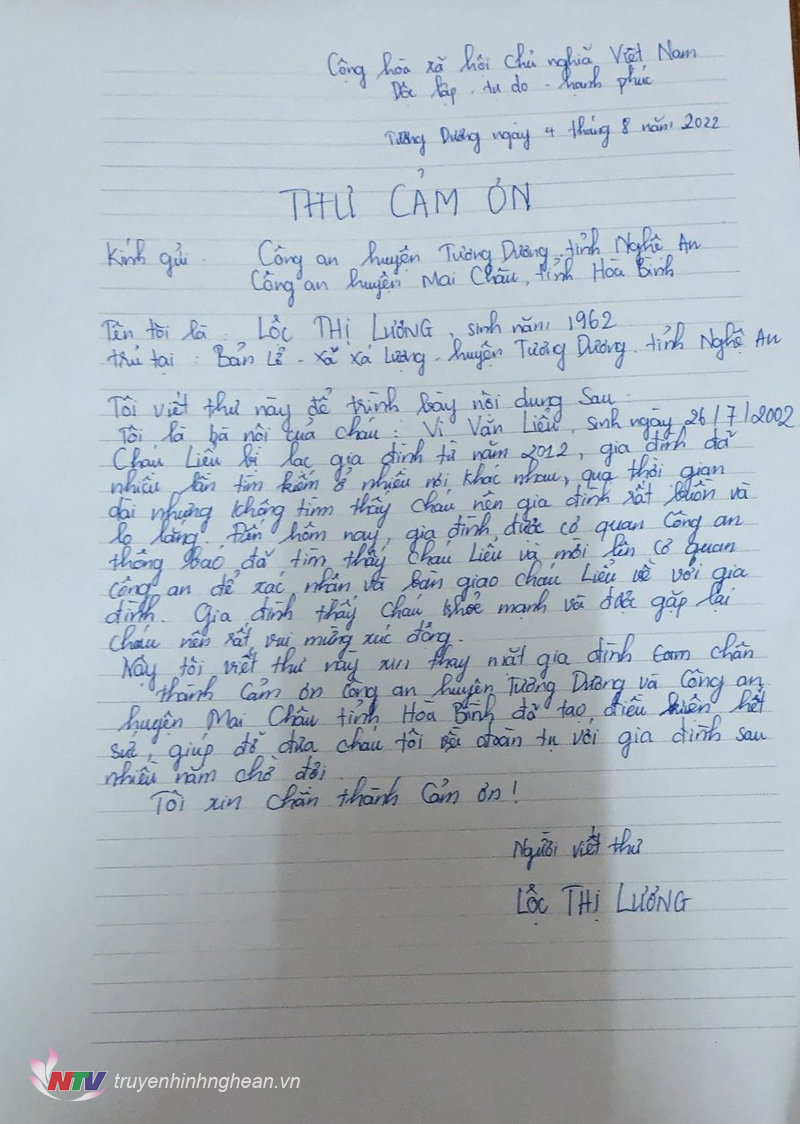 Cộng hòa xã hội chủ nghĩa Việt Nam
Độc lập - tự do - hạnh phúc
Tương Dương ngày 4 tháng 8 năm 2022
THƯ CẢM ƠN
Kính gửi : Công an huyện Tương Dương, tỉnh Nghệ An
Công an huyện Mai Châu, tỉnh Hòa Bình
Tên tôi là : LỘC THỊ LƯƠNG, sinh năm 1962
trú tại : Bản Lở - xã xá Lượng - huyện Tương Dương. tỉnh Nghệ An
Tôi viết thư này để trình bày nội dung sau :
Tôi là bà nội của cháu : Vi Văn Liểu, sinh ngày 26/7/2002
Cháu Liểu bị lạc gia đình từ năm 2012, gia đình đã
nhiều lần tìm kiếm ở nhiều nơi khác nhau, qua thời gian
dài nhưng không tìm thấy cháu nên gia đình rất buồn và
lo lắng. Đến hôm nay, gia đình được cơ quan Công an
thông báo đã tìm thấy cháu Liểu và mời lên cơ quan
công an để xác nhận và bàn giao cháu Liểu về với gia
đình. Gia đình thấy cháu khỏe mạnh và được gặp lại
cháu nên rất vui mừng xúc động.
Nay tôi viết thư này xin thay mặt gia đình cảm chân
thành cảm ơn Công an huyện Tương Dương và Công an
huyện Mai Châu tỉnh Hòa Bình đã tạo điều kiện hết
sức, giúp đỡ đưa cháu tôi về đoàn tụ với gia đình sau
nhiều năm chờ đợi.
Tôi xin chân thành cảm ơn !
Người viết thư
LỘC THỊ LƯƠNG
NTV truyenhinhnghean.vn